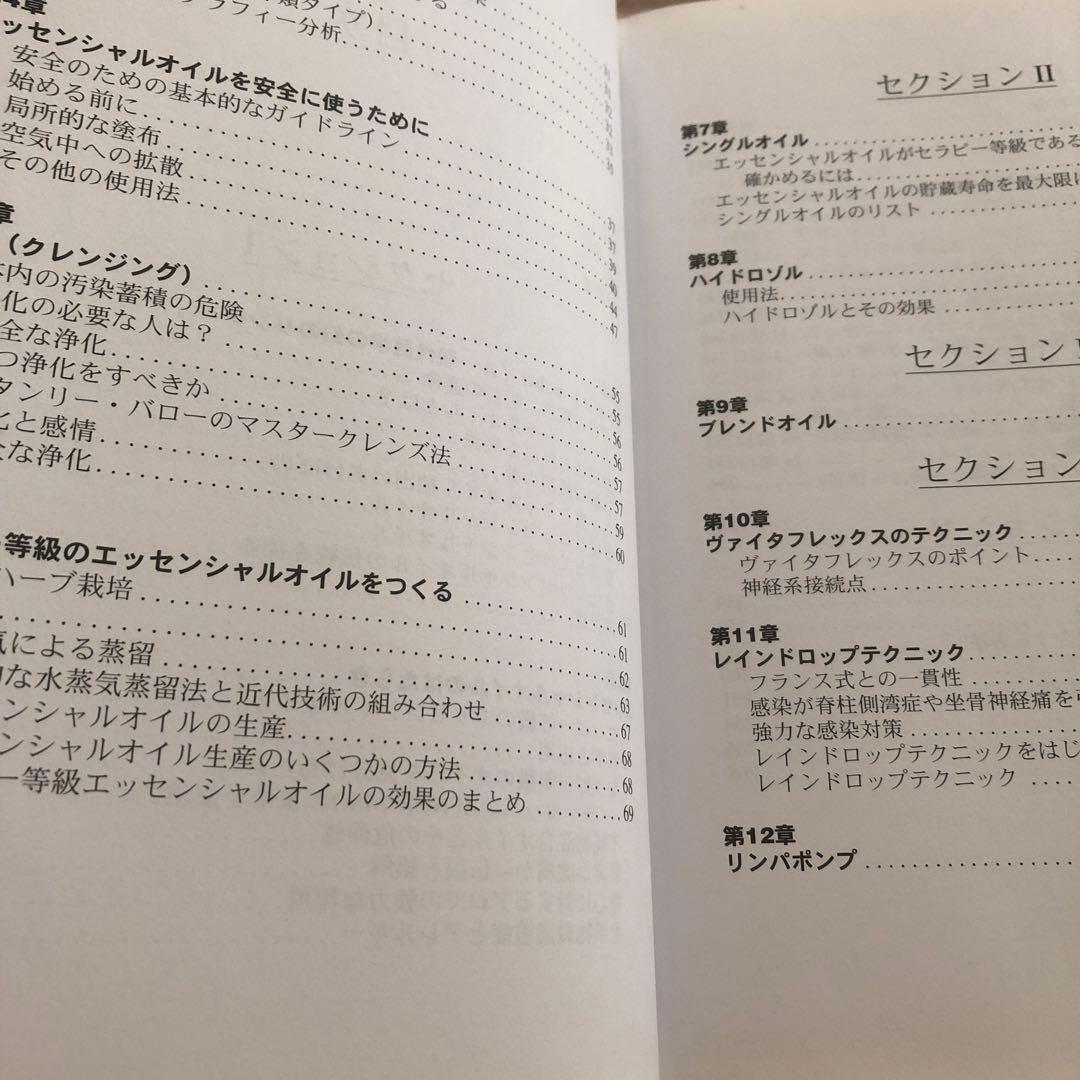 4章
ッセンシャルオイルを安全に使うために
安全のための基本的なガイドライン
始める前に
局所的な塗布
空気中への拡散
その他の使用法
類タイプ)
ラフィー分析
37
37
39
40
44
47
章
(クレンジング)
内の汚染蓄積の危険
化の必要な人は?
全な浄化
つ浄化をすべきか
タンリー・バローのマスタークレンズ法
と感情
な浄化
55
55
56
56
57
57
59
60
等級のエッセンシャルオイルをつくる
ハーブ栽培
による蒸留
な水蒸気蒸留法と近代技術の組み合わせ
ンシャルオイルの生産
ンシャルオイル生産のいくつかの方法
ー等級エッセンシャルオイルの効果のまとめ
61
61
62
63
67
68
68
69
セクション II
第7章
シングルオイル
エッセンシャルオイルがセラピー等級である
確かめるには
エッセンシャルオイルの貯蔵寿命を最大限に
シングルオイルのリスト
第8章
ハイドロゾル
使用法
ハイドロゾルとその効果
セクション
第9章
ブレンドオイル
セクション
第10章
ヴァイタフレックスのテクニック
ヴァイタフレックスのポイント
神経系接続点
第11章
レインドロップテクニック
フランス式との一貫性
感染が脊柱側湾症や坐骨神経痛を
強力な感染対策
レインドロップテクニックをはじ
レインドロップテクニック
第12章
リンパポンプ